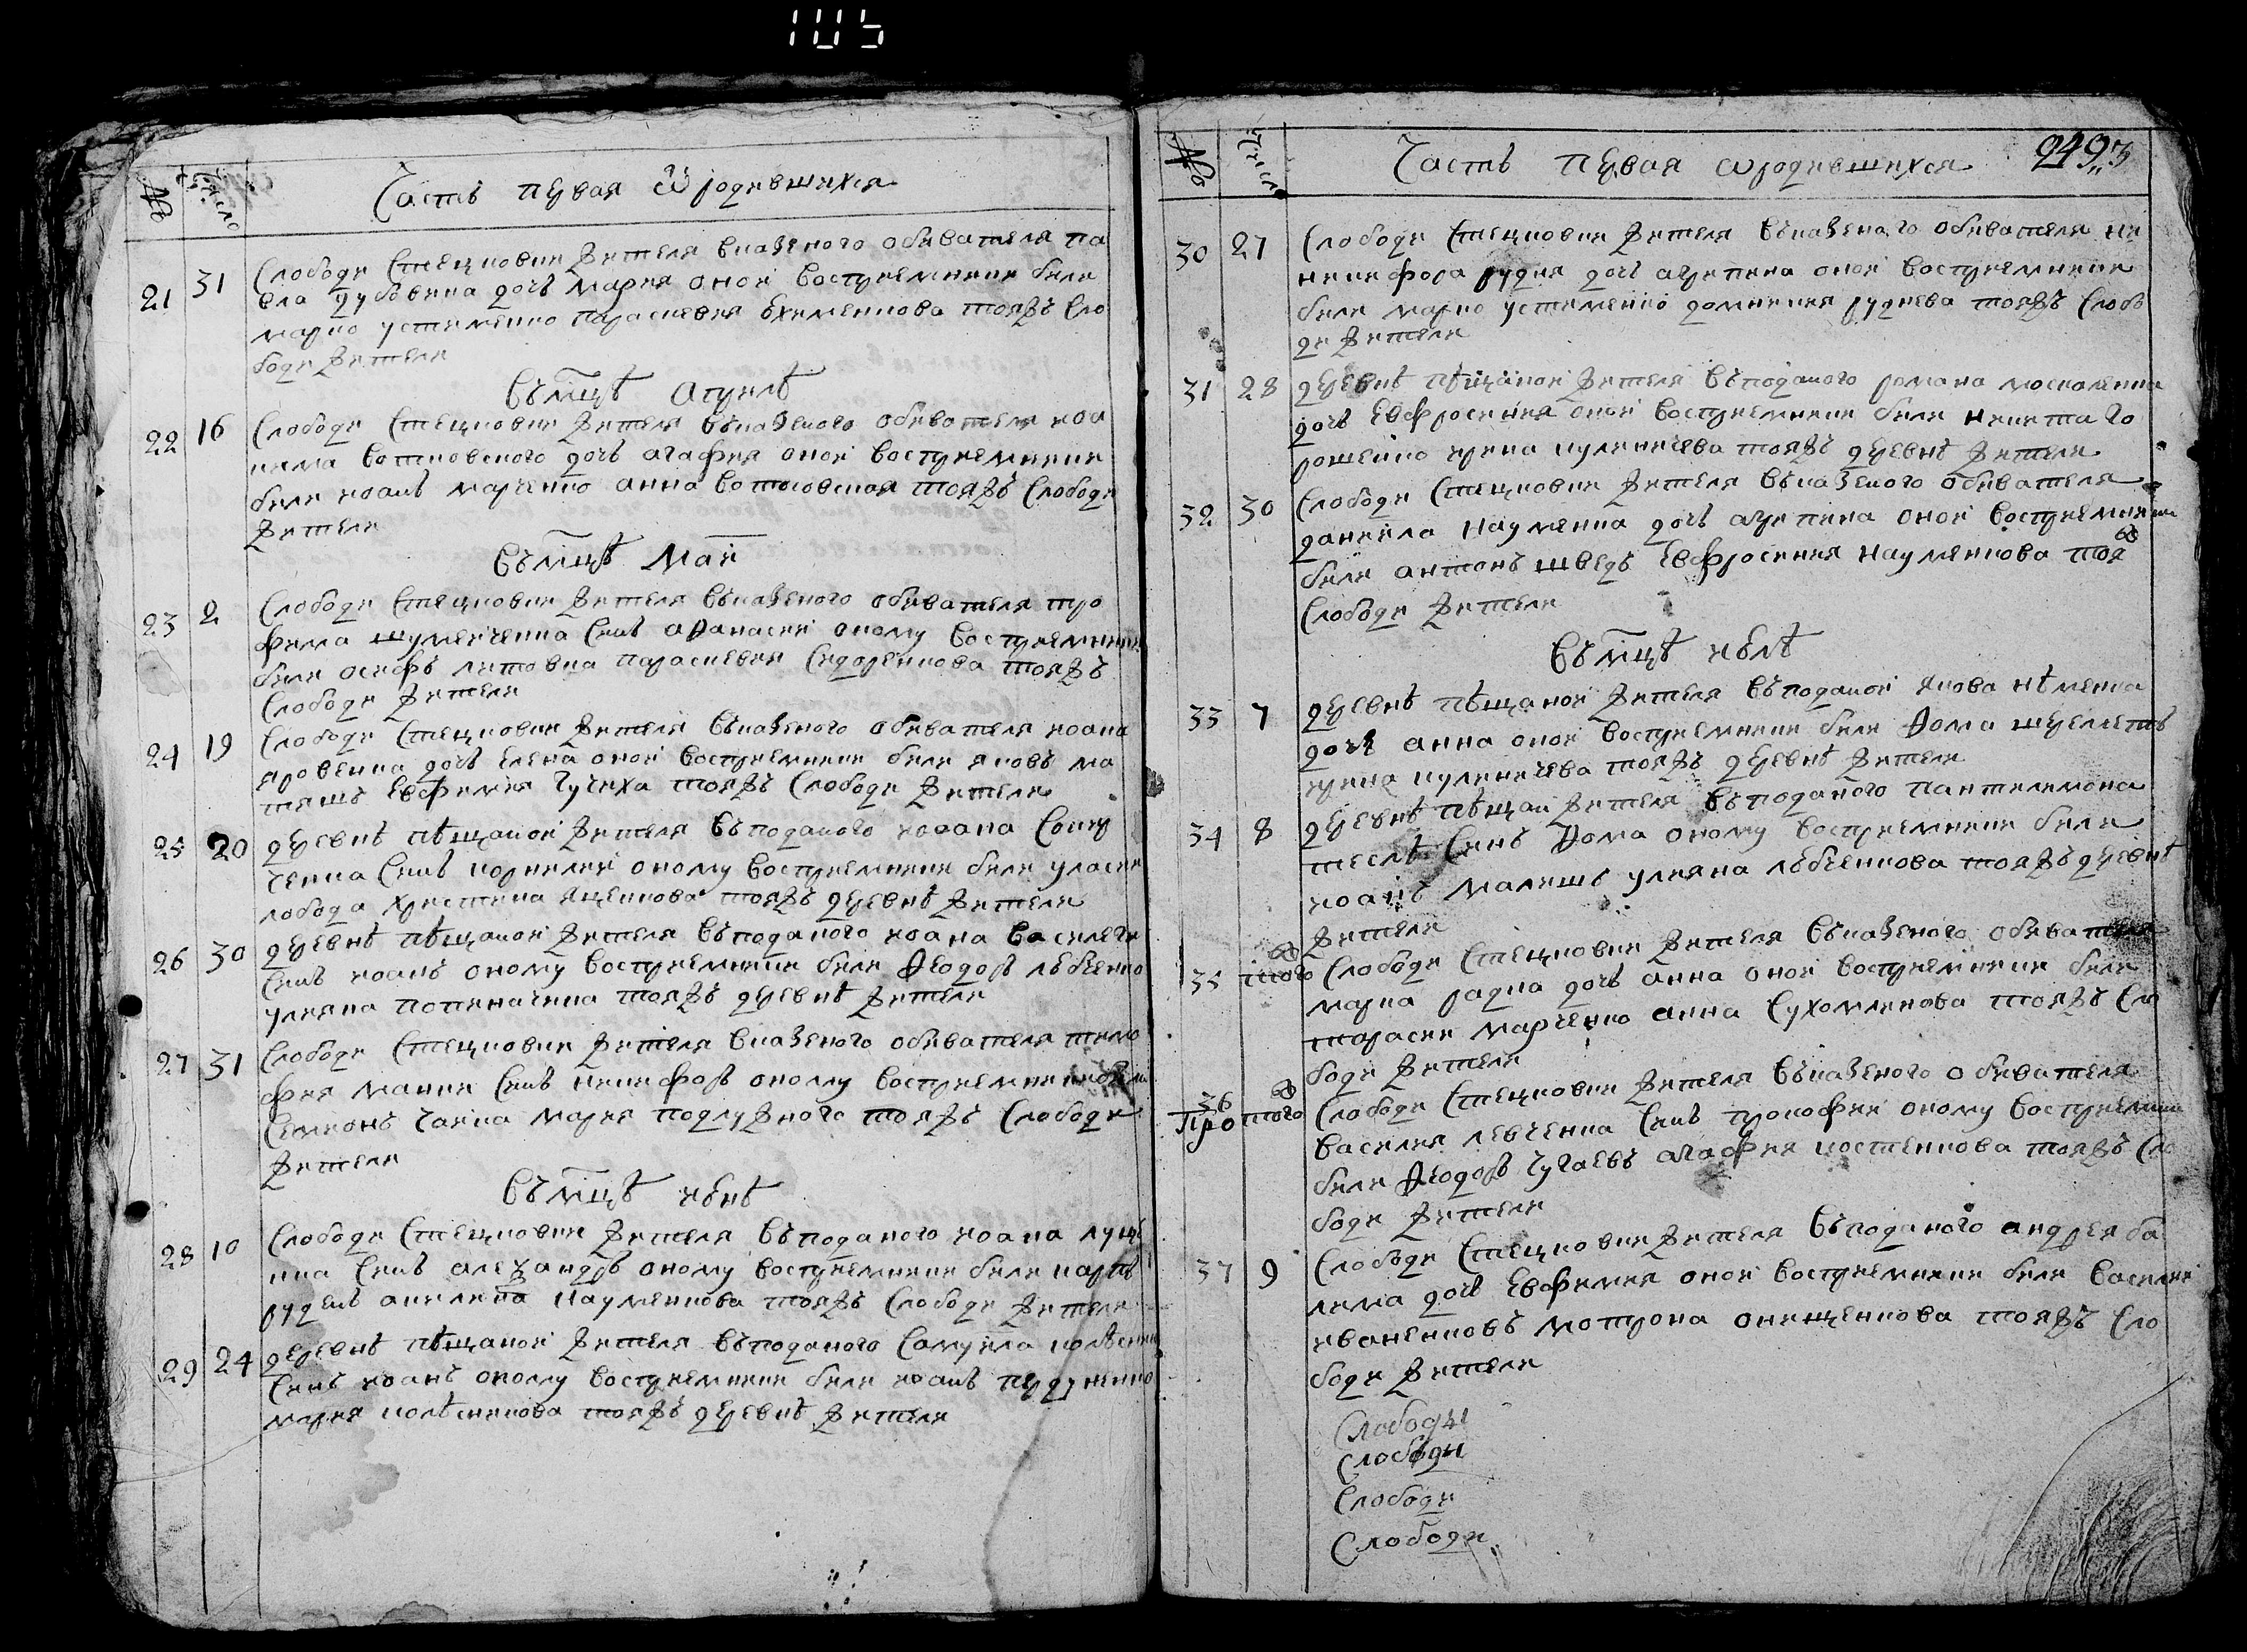 105
№ Число Часть первая ѿ родившихся
21 31 Слободи Стецковки жителя вказеного обивателя па
вла дубовика дочь мария оной восприемники били
марко устименко параскевия ехименкова тояжъ сло
боди жители
Въмцѣ априлѣ
22 16 Слободи Стецковки жителя въказеного обивателя иоа
кима вотковского дочь агафия оной восприемники
били иоанъ марченко анна вотковская тояжъ слободи
жители
Въмцѣ маи
23 2 Слободи Стецковки жителя въказеного обивателя тро
фима шумейченка синъ аѳанасий оному восприемники
били осифъ литовка параскевия сидоренкова тояжъ
слободи жители
24 19 Слободи Стецковки жителя въказеного обивателя иоана
яровенка дочь елена оной восприемники били яковъ ма
тяшъ евфимия чучиха тояжъ слободи жители
25 20 деревнѣ пѣщаной жителя въподаного иоана
ченка синъ корнилий оному восприемники били уласий
лобода христина яценкова тояжъ деревнѣ жители
26 30 деревнѣ пѣщаной жителя въподаного иоана
синъ иоанъ оному восприемники били ѳеодоръ лѣбченко
улияна тояжъ деревнѣ жители
27 31 Слободи Стецковки жителя вказеного обивателя тимо
фия синъ никифоръ оному восприемники били
симионъ чайка мария подлужного тояжъ слободи
жители
Въмцѣ июнѣ
28 10 Слободи Стецковки жителя въподаного иоана
нка синъ алеѯандръ оному восприемники били карпъ
акилина науменкова тояжъ слободи жители
29 24 деревнѣ пѣщаной жителя въподаного самуила
синъ иоанъ оному восприемники били иоанъ
мария колѣсникова тояжъ деревнѣ жители
№ Число Часть первая ѡ родившихся 249
30 27 Слободи Стецковки жителя въказеного обивателя ни
никифора рудия дочь агрипина оной восприемники
били марко устименко домникия руднева тояжъ слобо
ди жители
31 28 деревнѣ пѣщаной жителя въподаного романа москаленка
дочь евфросиния оной восприемники били никита го
рошейко ирина куликичева тояжъ деревнѣ жители
32 30 Слободи Стецковки жителя въказеного обивателя
даниила науменка дочь агрипина оной восприемники
били антонъ шведъ евфросиния науменкова тояж
слободи жители
Въмцѣ июлѣ
33 7 деревнѣ пѣщаной жителя въподаной якова нѣменка
дочь анна оной восприемники били ѳома шереметъ
ирина куликичева тояжъ деревнѣ жители
34 8 деревнѣ пѣщан жителя въподаного пантелимона
синъ ѳома оному восприемники били
иоанъ малишъ улияна лѣбченкова тояжъ деревнѣ
жители
35 тогож Слободи Стецковки жителя въказеного обивателя
марка радка дочь анна оной восприемники били
тарасий марченко анна сухомлинова тояжъ сло
боди жители
36 тогож Слободи Стецковки жителя въказеного обивателя
Про василия левченка синъ прокофий оному восприемники
били ѳеодоръ чугаевъ агафия костенкова тояжъ сло
боди жители
37 9 Слободи Стецковки жителя въподаного андрея ба
лима дочь евфимия оной восприемники били василий
иваненковъ мотрона онищенкова тояжъ сло
боди жители
Слободы
Слободи
Слободи
Слободи